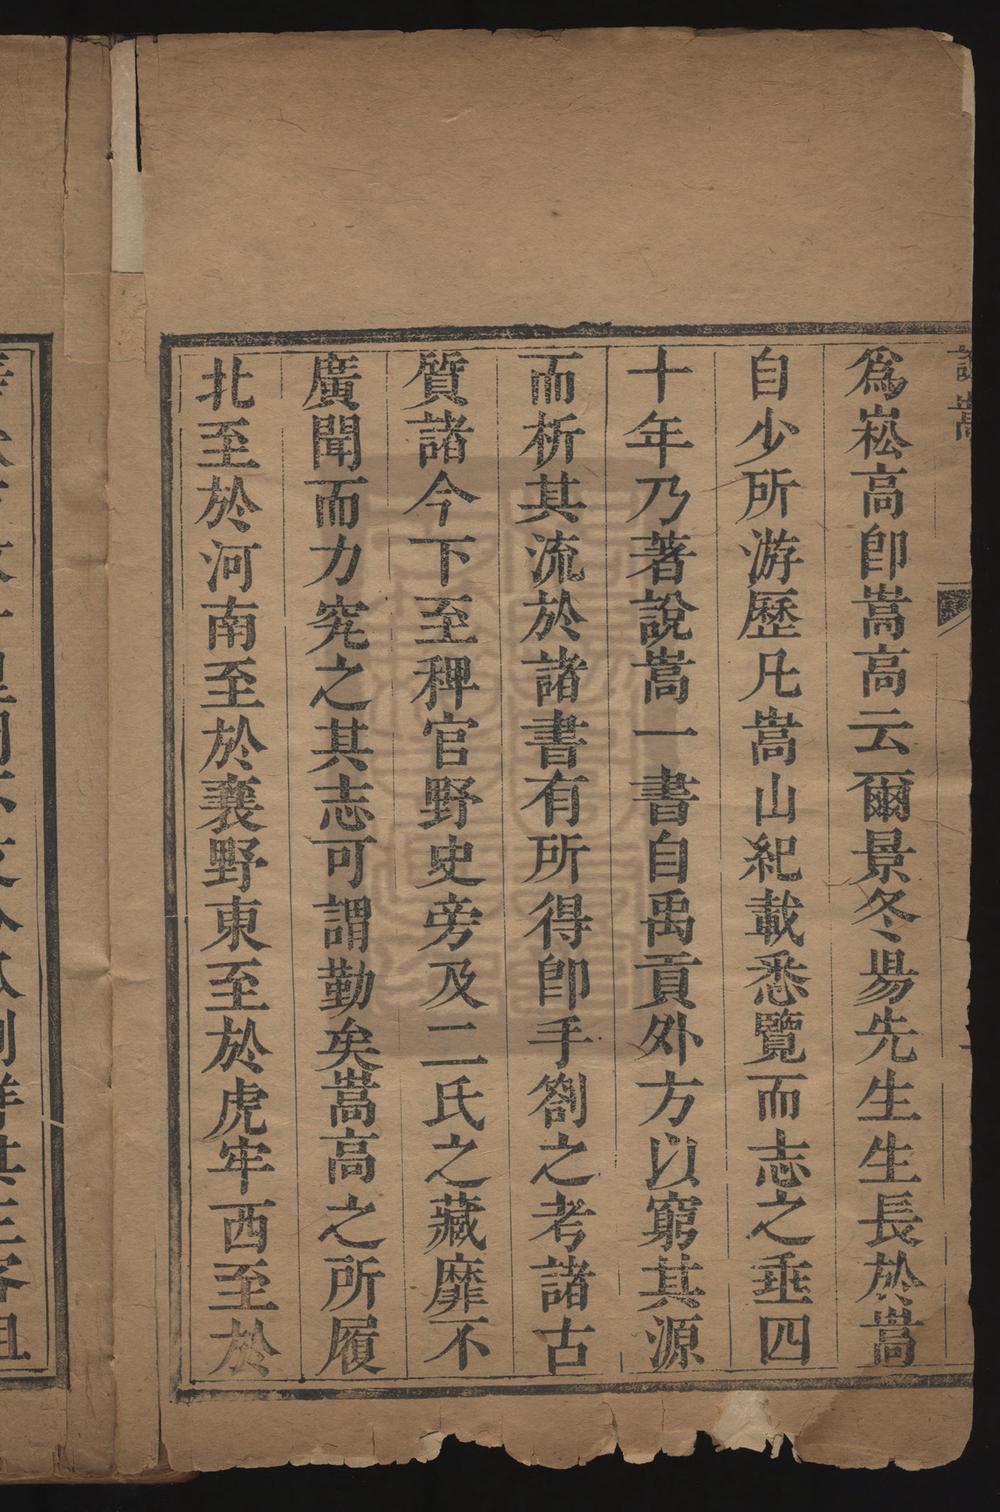 說嵩
爲崧高卽嵩高云爾景冬昜先生生長於嵩
自少所游歷凡嵩山紀載悉覽而志之垂四
十年乃著說嵩一書自禹貢外方以窮其源
而析其流於諸書有所得卽手劄之考諸古
質諸今下至稗官野史旁及二氏之藏靡不
廣聞而力究之其志可謂勤矣嵩高之所履
北至於河南至於襄野東至於虎牢西至於